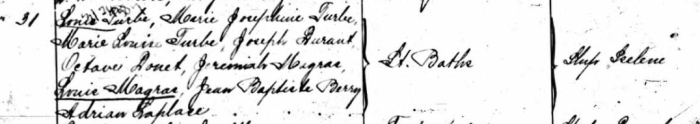 " 31 Louis Turbe, Marie Josephine Turbe,
Marie Louise Turbe, Joseph Durant,
Octave Donet, Jeremiah Magras, St. Baths Ship Irelene
Louis Magras, Jean Baptiste Berry
Adrian Laplace